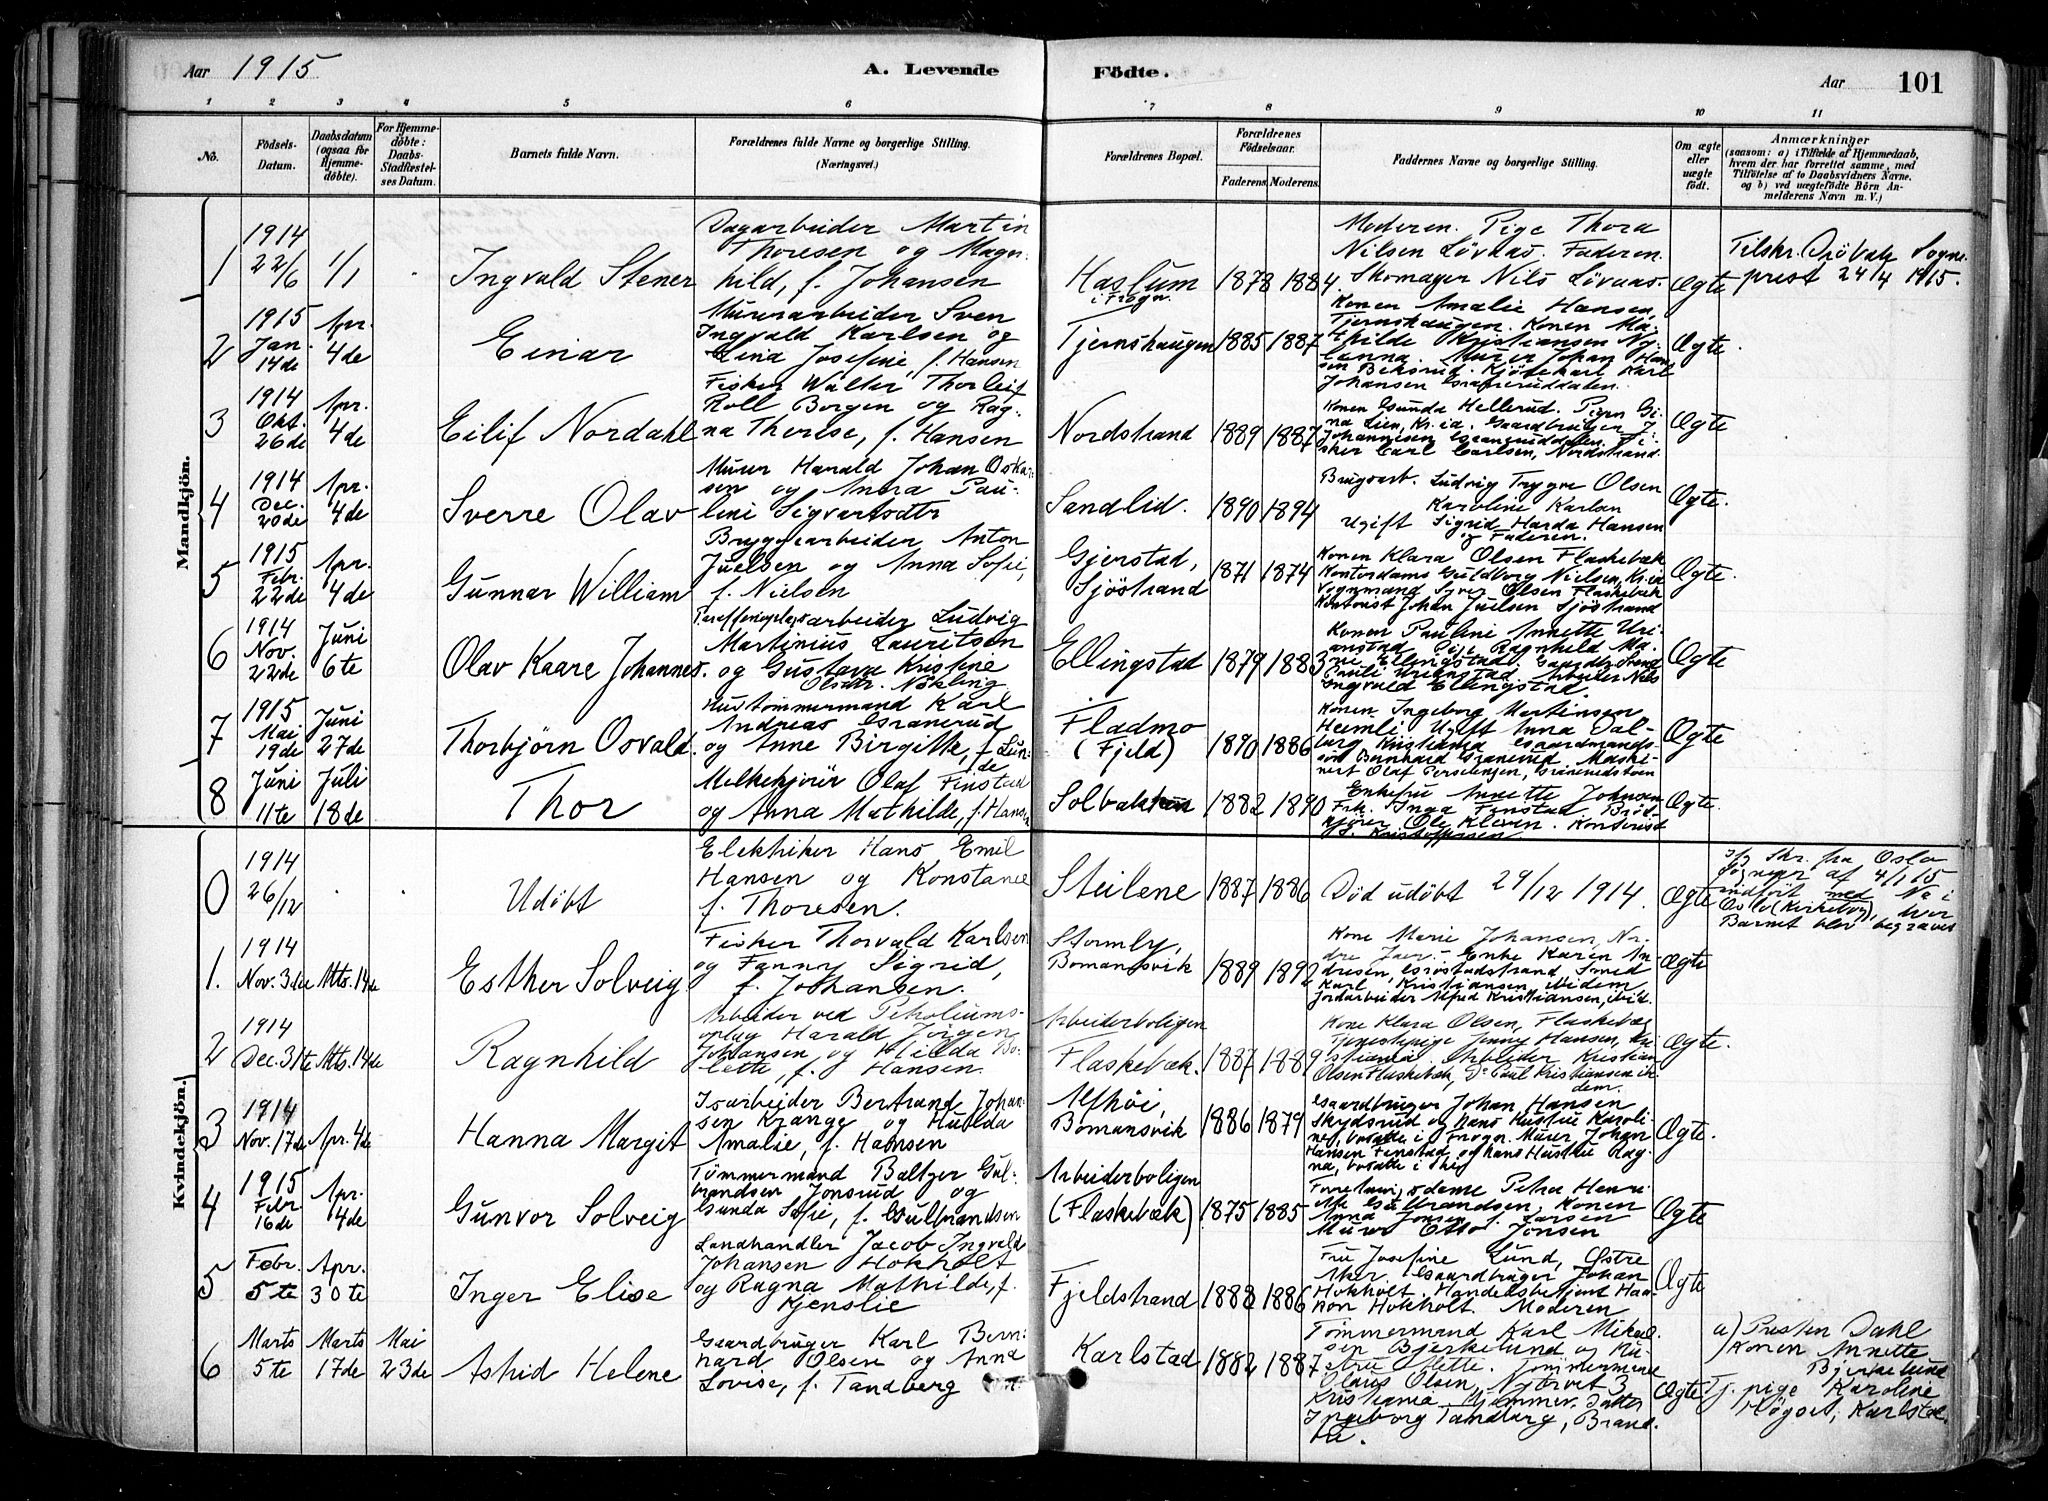 Aar 1915 A. Levende Födte. Aar 101
1 2 3 4 5 6 7 8 9 10 11
No. Födsels-Datum. Daabsdatum (ogsaa for Hjemmedöbte). For Hjemmedöbte: Daabs-Stadfæstelses Datum. Barnets fulde Navn. Forældrenes fulde Navne og borgerlige Stilling. (Næringsvei.) Forældrenes Bopæl. Forældrenes Födselsaar. Faderens. Moderens. Faddernes Navne og borgerlige Stilling. Om ægte eller uægte födt. Anmærkninger
(saasom: a) i Tilfælde af Hjemmedaab,
hvem der har forrettet samme, med
Tilföielse af to Daabsvidners Navne.
og b) ved uægtefödte Börn Anmelderens Navn m. V.)
Mandkjön.
1 1914 22/6 1/1 Ingvald Stener
Dagarbeider Martin
Thoresen og Magn-
hild, f. Johansen
Haslum
i Frogn.
1878 1884.
Moderen. Pige Thora
Nilsen Lövaas. Faderen.
Skomager Nils Lövaas.
Ægte
Tilskr. Dröbak Sogne-
prest 24/4 1915.
2 1915 Jan. 14de Apr. 4de Einar
Murerarbeider Sven
Ingvald Karlsen og
Lina Josefine, f. Hansen
Tjernshaugen 1885 1887
Konen Amalie Hansen,
Tjernshaugen. Konen Ma-
thilde Kristiansen
Murer Johan Han-
sen
Karl
Johansen
Ægte.
3 1914 Okt. 26de Apr. 4de Eilif Nordahl
Fisker Walter Thorleif
Roll Borgen og Rag-
na Therese, f. Hansen
Nordstrand 1889 1887
Konen Gunda Hellerud. Pigen Gi-
na Lien, Kr.ia. Gaardbruger J.
Johannesen Fi-
sker Carl Carlsen, Nordstrand.
Ægte
4 1914 Dec. 20de Apr. 4de Sverre Olav
Murer Harald Johan Oskar-
sen og Anna Pau-
line Sigvartsdtr
Sandlid. 1890 1894
Ludvig Trygve Olsen
Karoline Karlsen
Ugift Sigrid Harda Hansen
og Faderen.
Ægte.
5 1915 Febr. 22de Apr. 4de Gunnar William
Bryggearbeider Anton
Juelsen og Anna Sofie,
f. Nielsen
Gjerstad,
Sjöstrand
1871 1874
Konen Klara Olsen Flaskebæk
Kontordame Guldborg Nielsen, Kr.ia
Vognmand Syver Olsen Flaskebæk
Kontorist Johan Juelsen Sjöstrand
Ægte.
6 1914 Nov. 22de Juni 6te Olav Kaare Johannes.
arbeider Ludvig
Martinius Lauritsen
og Gustava Kristine
Olsdtr. Nökling
Ellingstad 1879 1883
Konen Pauline Annette Uri-
anstad Pige Ragnhild Ma-
rie Ellingstad. Gaardbr. Svend
Pauli Urianstad. Arbeider Nils
Ingvald Ellingstad.
Ægte
7 1915 Mai 19de Juni 27de Thorbjörn Osvald.
Hustömmermand Karl
Andreas Granerud
og Anne Birgitte, f. Lun-
de
Fladmo
(Fjeld)
1890 1886
Konen Ingeborg Martinsen
Heimli. Ugift Anna Dal-
Kristiania Gaardmands-
sön Bernhard Granerud. Maski-
nist Olaf
Ægte
8 Juni 11te Juli 18de Thor
Melkekjörer Olaf Finstad
og Anna Mathilde, f. Hansen
Solbakken 1882 1890
Enkefru Annette Johnsen
Frk. Inga Finstad. Bröd-
kjörer Ole Kleven. Kontorist
Kristoffersen
Ægte.
Kvindekjön.
0 1914 26/12 Udöbt
Elektriker Hans Emil
Hansen og Konstance
f. Thoresen.
Steilene 1887 1886 Död udöbt 29/12 1914. Ægte
Skr. fra Oslo
Sognepr. af 4/1 15
indfört med No i
Oslo (Kirkebog), hvor
Barnet blev begravet
1. 1914 Nov. 3de Mts. 14de Esther Solveig
Fisker Thorvald Karlsen
og Fanny Sigrid,
f. Johansen.
Stormly,
Bomansvik
1889 1892
Kone Marie Johansen, Nor-
dre Jaer. Enke Karen An-
dresen, Smed
Karl Kristiansen ibidem
Jordarbeider Alfred Kristiansen, ibid.
Ægte
2 1914 Dec. 31te Mts. 14de Ragnhild
Arbeider ved Petroleums-
oplag Harald Jörgen
Johansen og Hilda Bo-
lette, f. Hansen
Arbeiderboligen
Flaskebæk.
1887 1889
Kone Klara Olsen, Flaskebæk
Tjenestepige Jenny Hansen, Kri-
stiania. Arbeider Kristian
Olsen Flaskebæk, Do Paul Kristiansen ibi-
dem.
Ægte.
3 1914 Nov. 17de Apr. 4de Hanna Margit
Isarbeider Bertrand Johan-
sen Krange og Hulda
Amalie, f. Hansen
Alfhöi,
Bomansvik
1886 1879
Gaardbruger Johan Hansen
Skydsrud og hans Hustru Karoli-
ne, bosatte i Frogn. Murer Johan
Hansen Finstad og hans Hustru Rag-
na, bosatte i Ski
Ægte.
4 1915 Febr 16de Apr. 4de Gunvor Solveig
Tömmermand Baltzer Gul-
brandsen Jonsrud og
Gunda Sofie, f. Gulbrandsen
Arbeiderboligen
(Flaskebæk)
1875 1885
Petra Henri-
ette Gulbrandsen, Konen
Anna Jonsen f. Larsen
Murer Otto Jonsen
Ægte
5 Febr. 5te Apr. 30te Inger Elise
Landhandler Jacob Ingvald
Johansen Hokholt
og Ragna Mathilde, f.
Kjenslie
Fjeldstrand 1888 1886
Fru Josefine Lund, Østre
Aker. Gaardbruger Johan
Hokholt. Handelsbetjent Haa-
kon Hokholt. Moderen
Ægte
6 Marts 5te Marts 17de Mai 23de Astrid Helene
Gaardbruger Karl Bern-
hard Olsen og Anna
Lovise, f. Tandberg
Karlstad 1882 1887
Tömmermand Karl Mikael-
sen Bjerkelund og Hu-
stru Mette. Tömmermand
Olaus Olsen, 3
Kristiania Hjemmev. Datter
Ingeborg Tandberg, Brand-
bu.
Ægte
a) Presten Dahl
Konen Annette
Bjerkelund
Tj. pige Karoline
Högset, Karlstad.